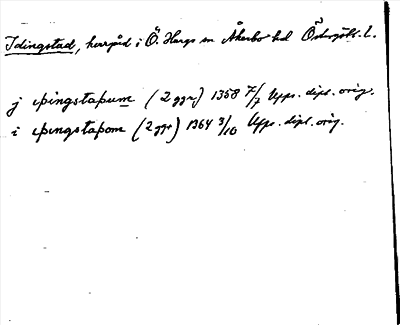 Idingstad, herrgård i Ö. Hargs sn Åkerbo hd Östergötl. l.
j iþingstaþum (2 ggr) 1358 7/7 Upps. dipl. orig.
i iþingstaþom (2 ggr) 1364 3/10 Upps. dipl. orig.